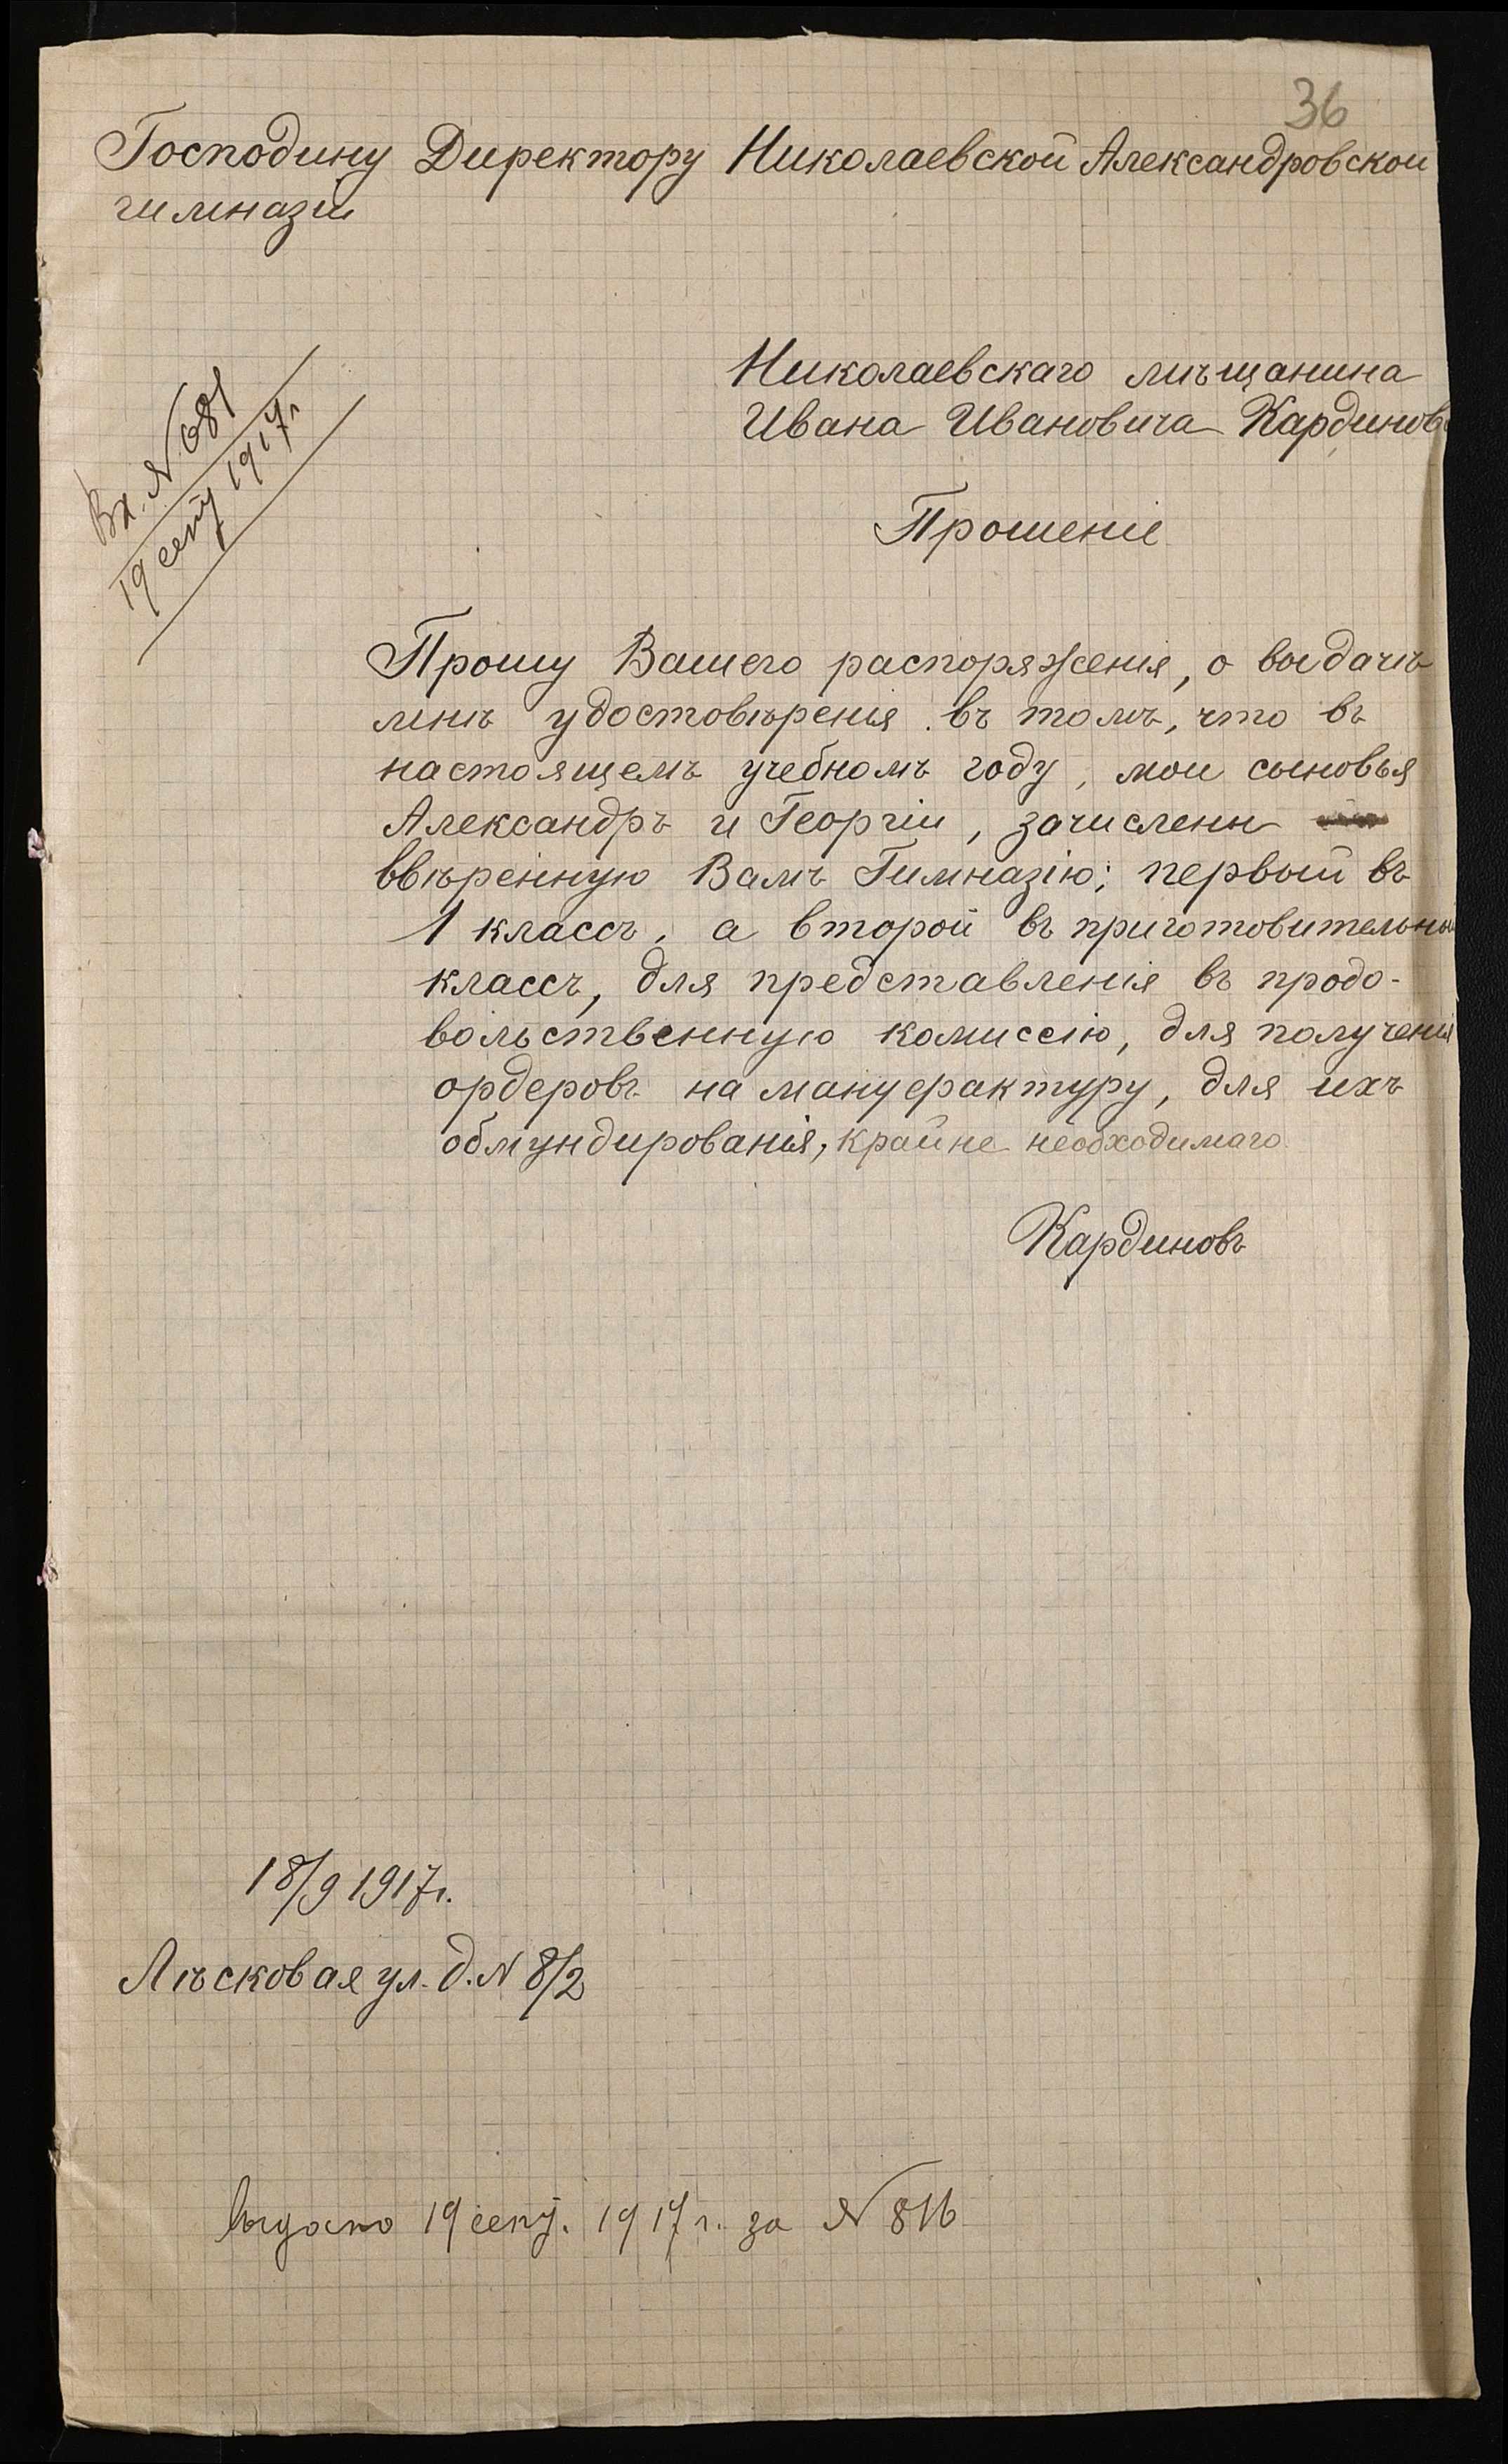 36
Господину Директору Николаевской Александровской
гимназіи
Николаевскаго мѣщанина
Ивана Ивановича Кардинова
Вх. № 681
19 сент 1917 г
Прошеніе
Прошу Вашего распоряженія, о выдачѣ
мнѣ удостовѣренія въ томъ, что въ
настоящемъ учебномъ году, мои сыновья
Александръ и Георгіи, зачислены
ввѣренную Вамъ Гимназію; первый въ
1 классъ, а второй въ приготовительный
классъ, для представленія въ продо-
вольственную комиссію, для полученія
ордеровъ на мануфактуру, для ихъ
обмундированія, крайне необходимаго.
Кардиновъ
18/9 1917 г.
Лѣсковая ул. д. N 8/2
выдано 19 сент. 1917 г. за № 816